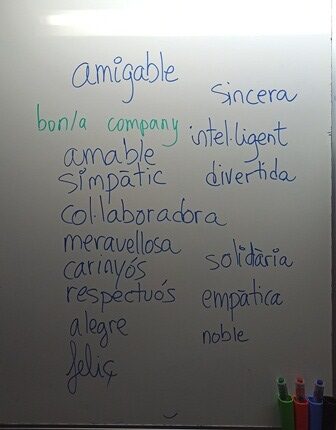 amigable
sincera
bon/a company
intel·ligent
amable
simpàtic
divertida
col·laboradora
meravellosa
carinyós
solidària
respectuós
empàtica
alegre
noble
feliç